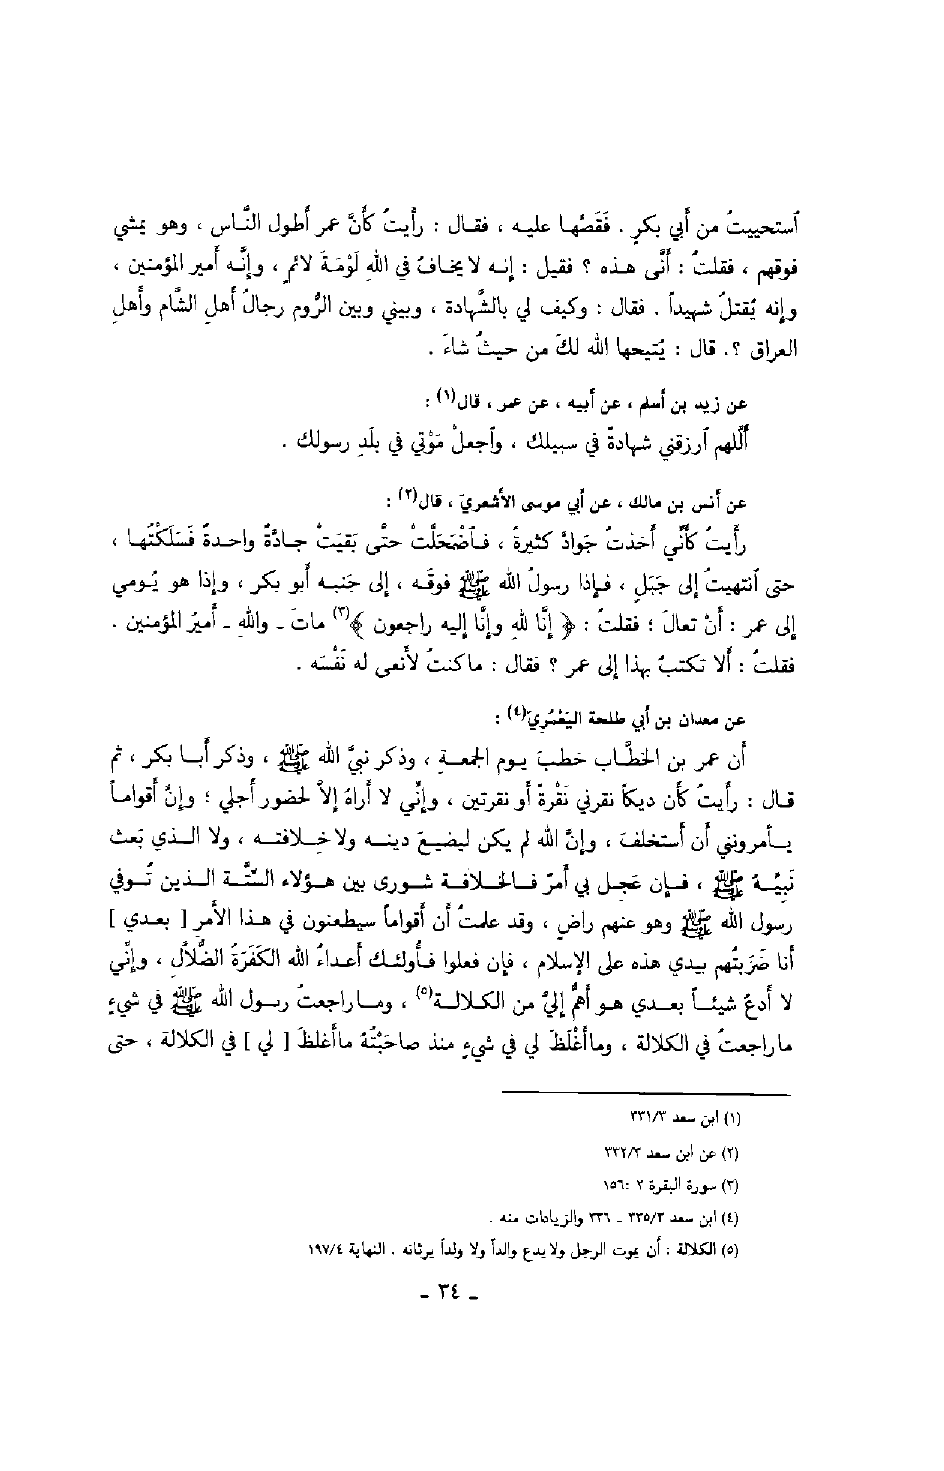 آستحييتُ من أبي بكرٍ . فَقَصّها عليه ، فقال : رأيتُ كأنَّ عمر أطول النَّاس ، وهو يمشي
فوقهم ، فقلتُ : أنَّى هذه ؟ فقيل : إنه لا يخافُ في اللهِ لَوْمَةَ لائمٍ ، وإنَّه أمير المؤمنين ،
وإنه يُقتلُ شهيداً . فقال : وكيف لي بالشَّهادة ، وبيني وبين الرُّوم رجالُ أهلِ الشَّام وأهلِ
العراق ؟. قال : يُتيحها الله لكَ من حيثُ شاءَ .
عن زيد بن أسلم ، عن أبيه ، عن عمر ، قال(١) :
أللّهم آرزقني شهادةً في سبيلك ، وآجعلْ مَوْتي في بلَدِ رسولك .
عن أنس بن مالك ، عن أبي موسى الأشعريّ ، قال(٢) :
رأيتُ كأنّي أخذتُ جَوادَّ كثيرةً ، فآضْمَحَلَّتْ حتَّى بَقيَتْ جادَّةً واحدةً فَسَلَكْتُها ،
حتى آنتهيتُ إلى جَبَلٍ ، فإذا رسولُ الله ﷺ فوقَه ، إلى جَنبه أبو بكر ، وإذا هو يُومي
إلى عمر : أنْ تعالَ ؛ فقلتُ : ﴿ إنَّا لله وإنَّا إليه راجعون ﴾(٣) ماتَ ـ واللهِ ـ أميرُ المؤمنين .
فقلتُ : ألا تكتبُ بهذا إلى عمر ؟ فقال : ماكنتُ لأنعى له نَفْسَه .
عن معدان بن أبي طلحة اليَعْمُريّ(٤) :
أن عمر بن الخطَّاب خطبَ يوم الجمعةِ ، وذكر نبيَّ الله ﷺ ، وذكر أبا بكر ، ثم
قال : رأيتُ كأن ديكاً نقرني نَقْرةً أو نقرتين ، وإنّي لا أراهُ إلاّ لحضور أجلي ؛ وإنَّ أقواماً
يأمرونني أن أستخلفَ ، وإنَّ الله لم يكن ليضيعَ دينه ولا خلافته ، ولا الذي بَعث
نَبيَّهُ ﷺ ، فإن عَجل بي أمرٌ فالخلافة شورى بين هؤلاء السِّتَّة الذين تُوفي
رسول الله ﷺ وهو عنهم راضٍ ، وقد علمتُ أن أقواماً سيطعنون في هذا الأمر [ بعدي ]
أنا ضَرَبتُهم بيدي هذه على الإسلام ، فإن فعلوا فأولئك أعداءُ الله الكَفَرَةُ الضُّلاَّل ، وإنّي
لا أدعُ شيئاً بعدي هو أهمُّ إليَّ من الكلالة(٥) ، وما راجعتُ رسول الله ﷺ في شيءٍ
ماراجعتُ في الكلالة ، وماأغلَظَ لي في شيءٍ منذ صاحَبْتُهُ ماأغلظَ [ لي ] في الكلالة ، حتى
(١) ابن سعد ٣٣١/٣
(٢) عن ابن سعد ٣٣٢/٣
(٣) سورة البقرة ٢ :١٥٦
(٤) ابن سعد ٣٣٥/٣ ـ ٣٣٦ والزيادات منه .
(٥) الكلالة : أن يموت الرجل ولا يدع والداً ولا ولداً يرثانه . النهاية ١٩٧/٤
ـ ٣٤ ـ